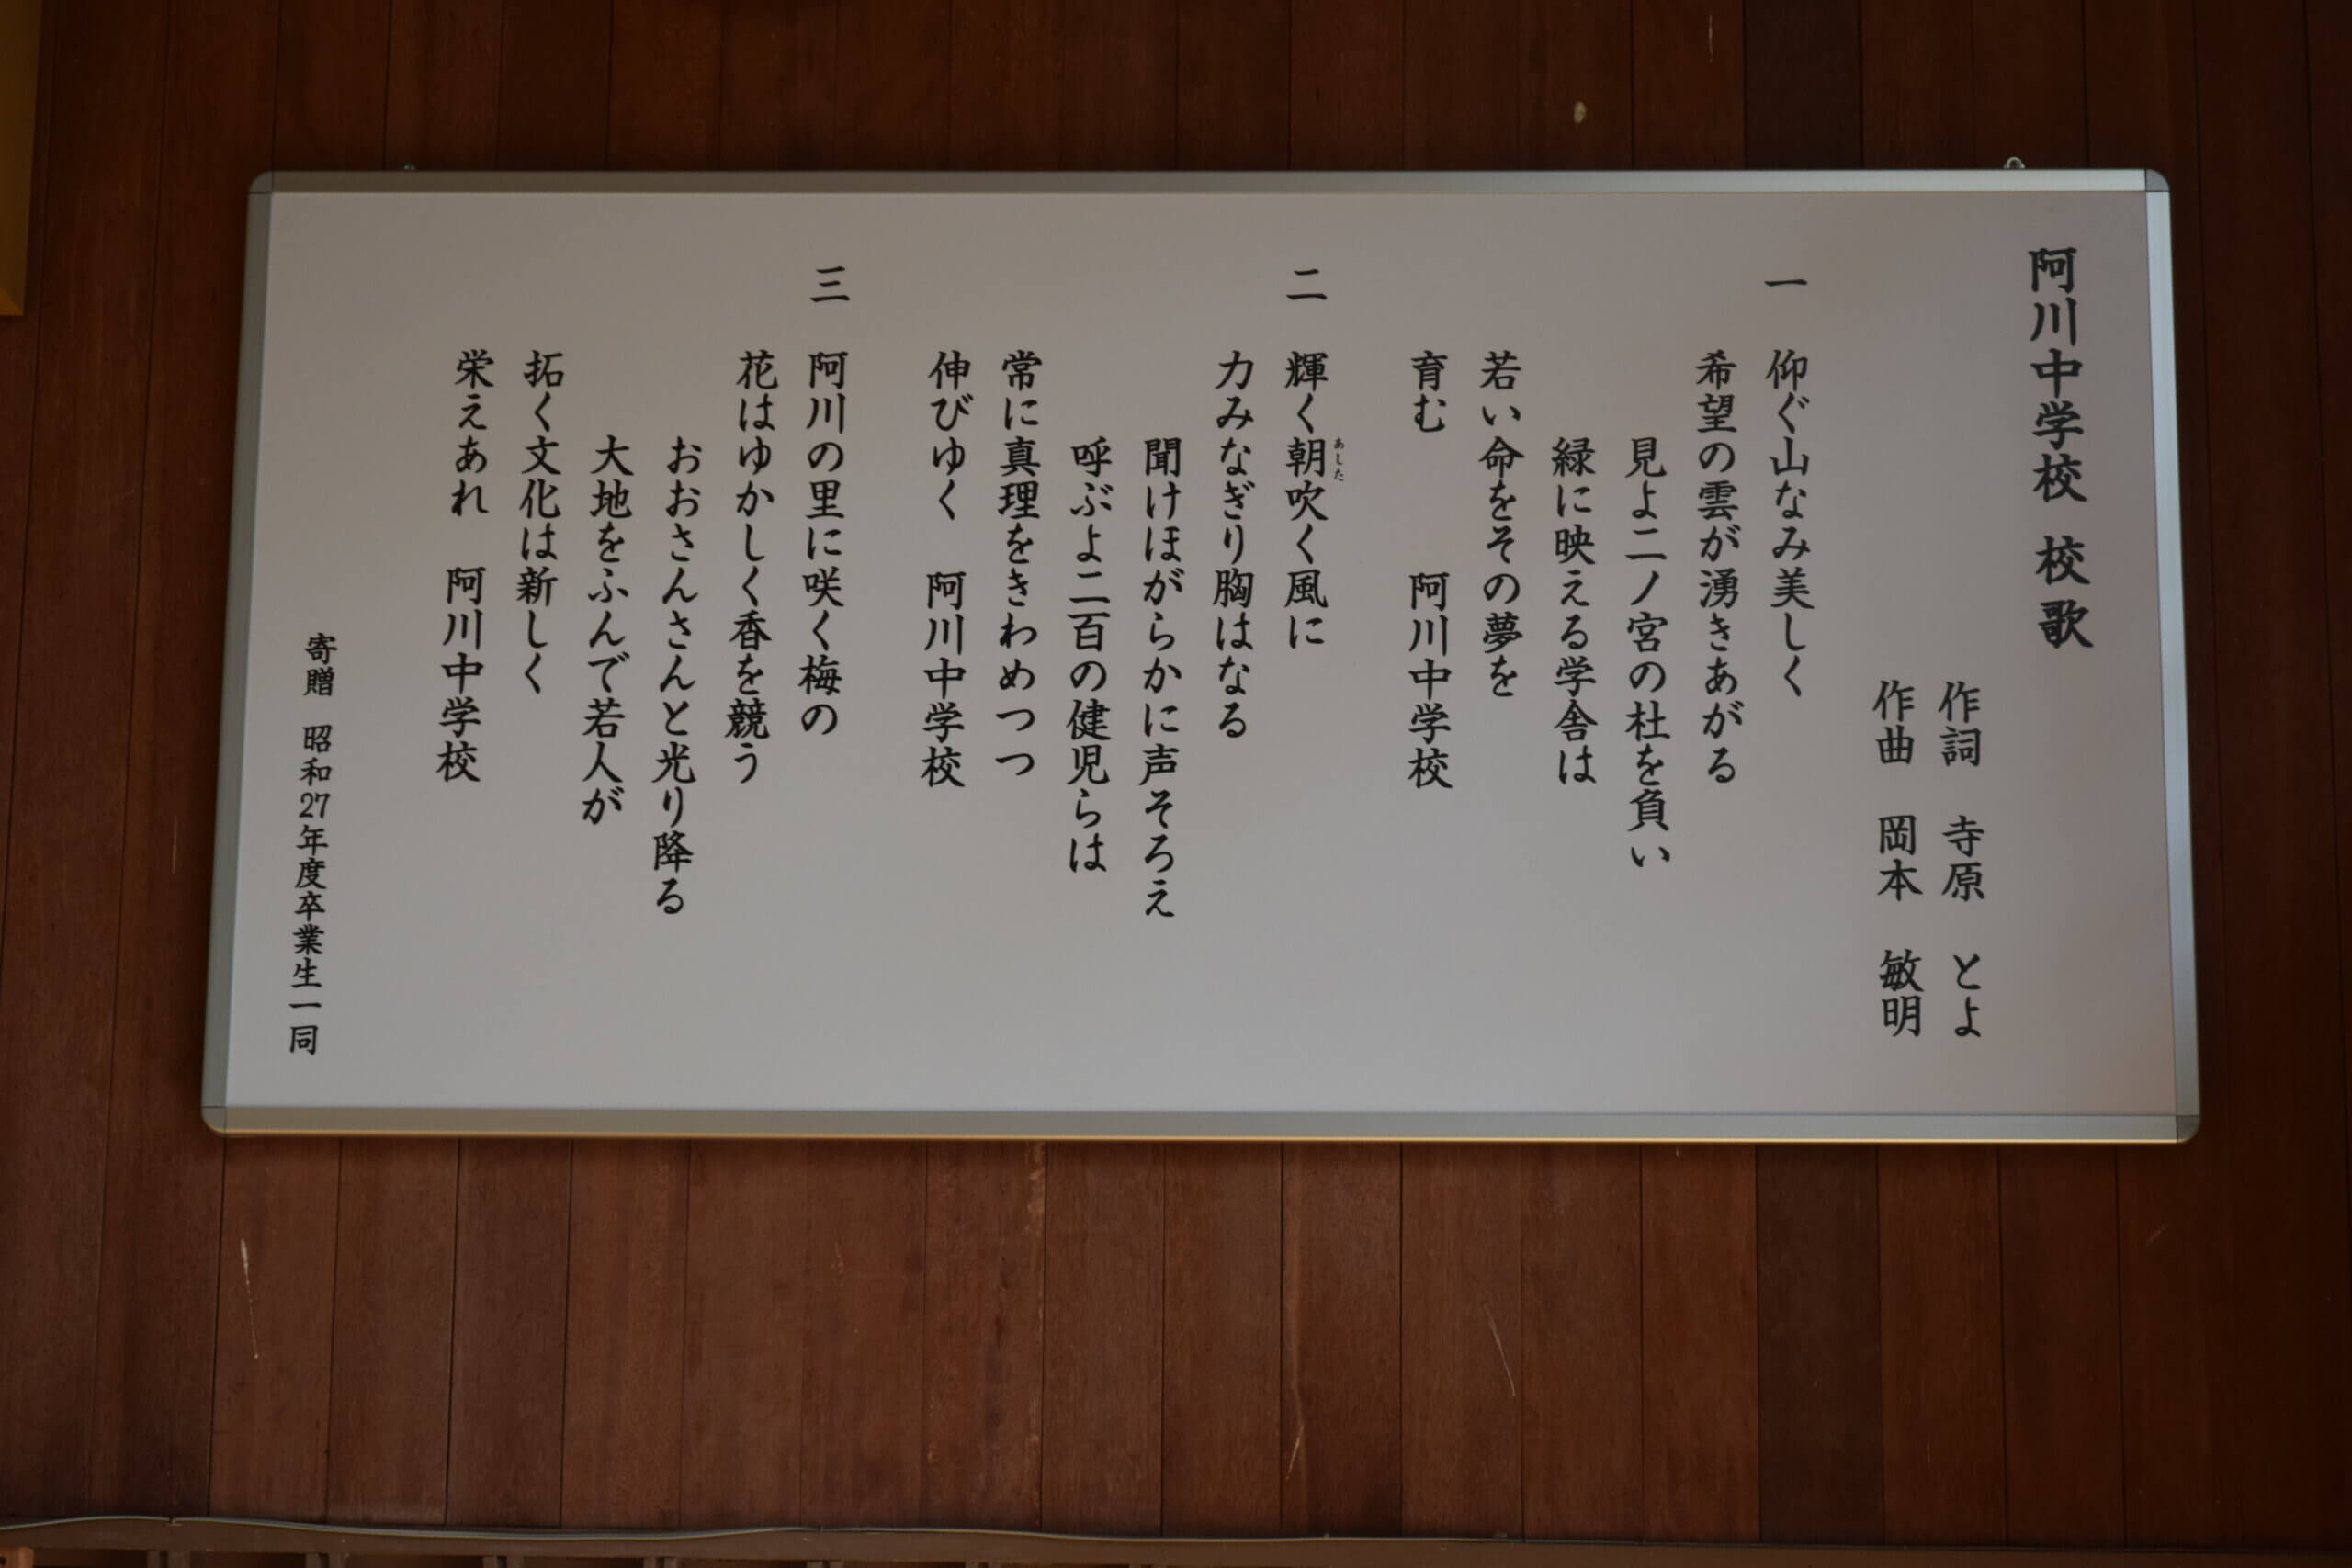 阿川中学校 校歌
作詞 寺原 とよ
作曲 岡本 敏明
一 仰ぐ山なみ美しく
希望の雲が湧きあがる
見よ二ノ宮の杜を負い
緑に映える学舎は
若い命をその夢を
育む 阿川中学校
二 輝く朝吹く風に
あした
力みなぎり胸はなる
聞けほがらかに声そろえ
呼ぶよ二百の健児らは
常に真理をきわめつつ
伸びゆく 阿川中学校
三 阿川の里に咲く梅の
花はゆかしく香を競う
おおさんさんと光り降る
大地をふんで若人が
拓く文化は新しく
栄えあれ 阿川中学校
寄贈 昭和27年度卒業生一同